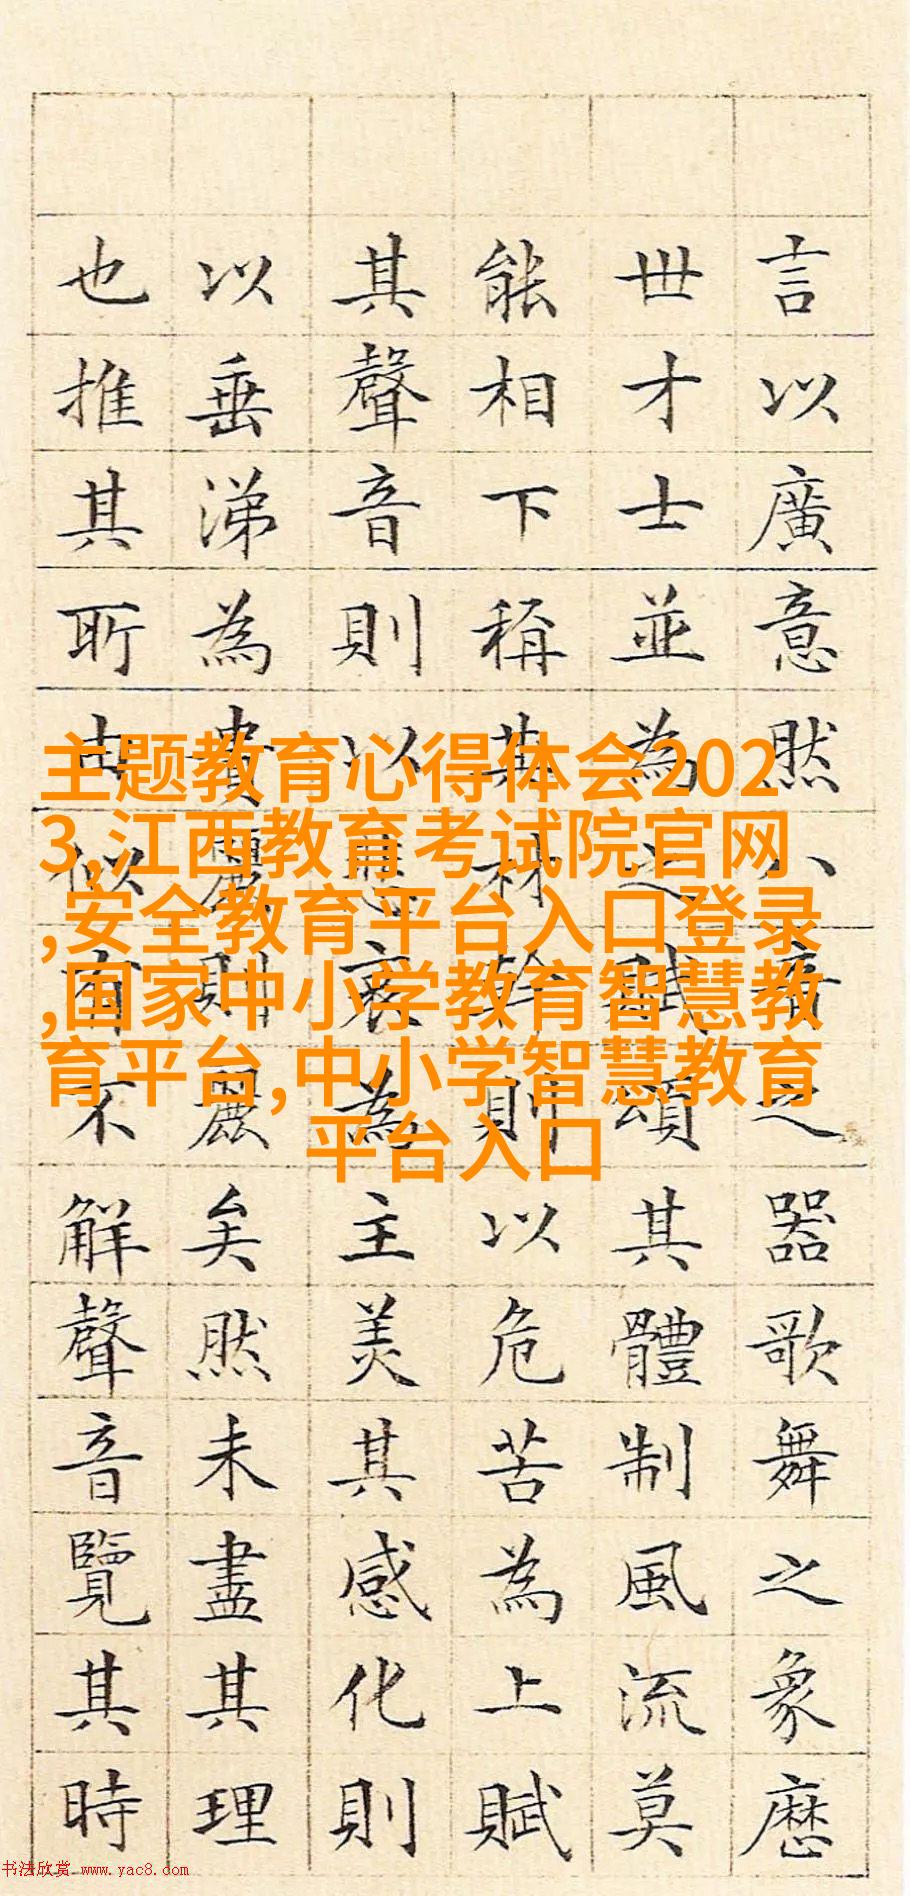 言以廣意然八音之器歌舞之象歷
世才士並為之賦頌其體制風流莫
能相下稱其材幹則以危苦為上賦
其聲音則以悲哀為主美其感化則
以垂涕為貴麗則麗矣然未盡其理
也推其所由似有不解聲音覽其時
主题教育心得体会202
3,江西教育考试院官网
,安全教育平台入口登录
,国家中小学教育智慧教
育平台,中小学智慧教育
平台入口
书法欣赏 www.yac8.com